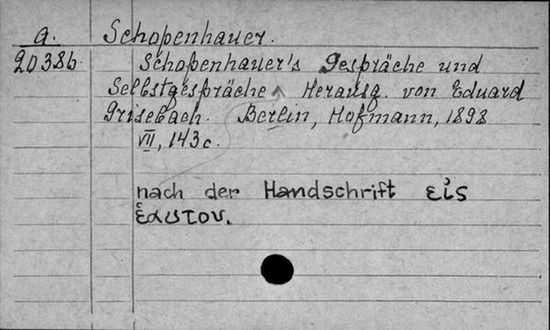 a. Schopenhauer.
20386. Schopenhauer's Gespräche und
Selbstgespräche ^ Herausg. von Eduard
Grisebach. Berlin, Hofmann, 1898
VII, 143 c.
nach der Handschrift εἰς
ἑαυτον.